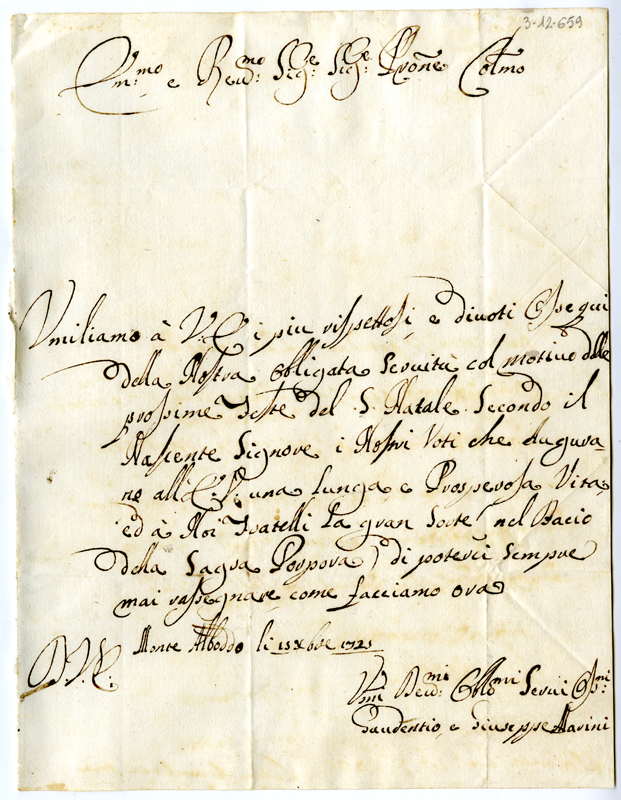 3-12-659
Em:mo e Reud:mo Sig:e Sig:e Prone Colmo
Vmiliamo à V.E. i piu rispettosi, e diuoti Ossequi
della Nostra obligata Seruitù col motiuo delle
prossime Feste del S. Natale. Secondo il
Nascente Signore i Nostri Voti che Augura-
no all'E.V. una lunga e Prosperosa Vita,
ed à Noi Fratelli la gran Sorte nel Bacio
della Sagra Porpora) di poterci sempre
mai rassegnare come facciamo ora
D.V.E. Monte Alboddo li 15 Xbre 1721
Vmi Deud:mi Obblmi Serui Osmi:
Gaudentio, e Giuseppe Marini